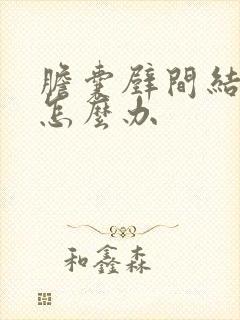 膽囊壁間結
怎麼办
和鑫森